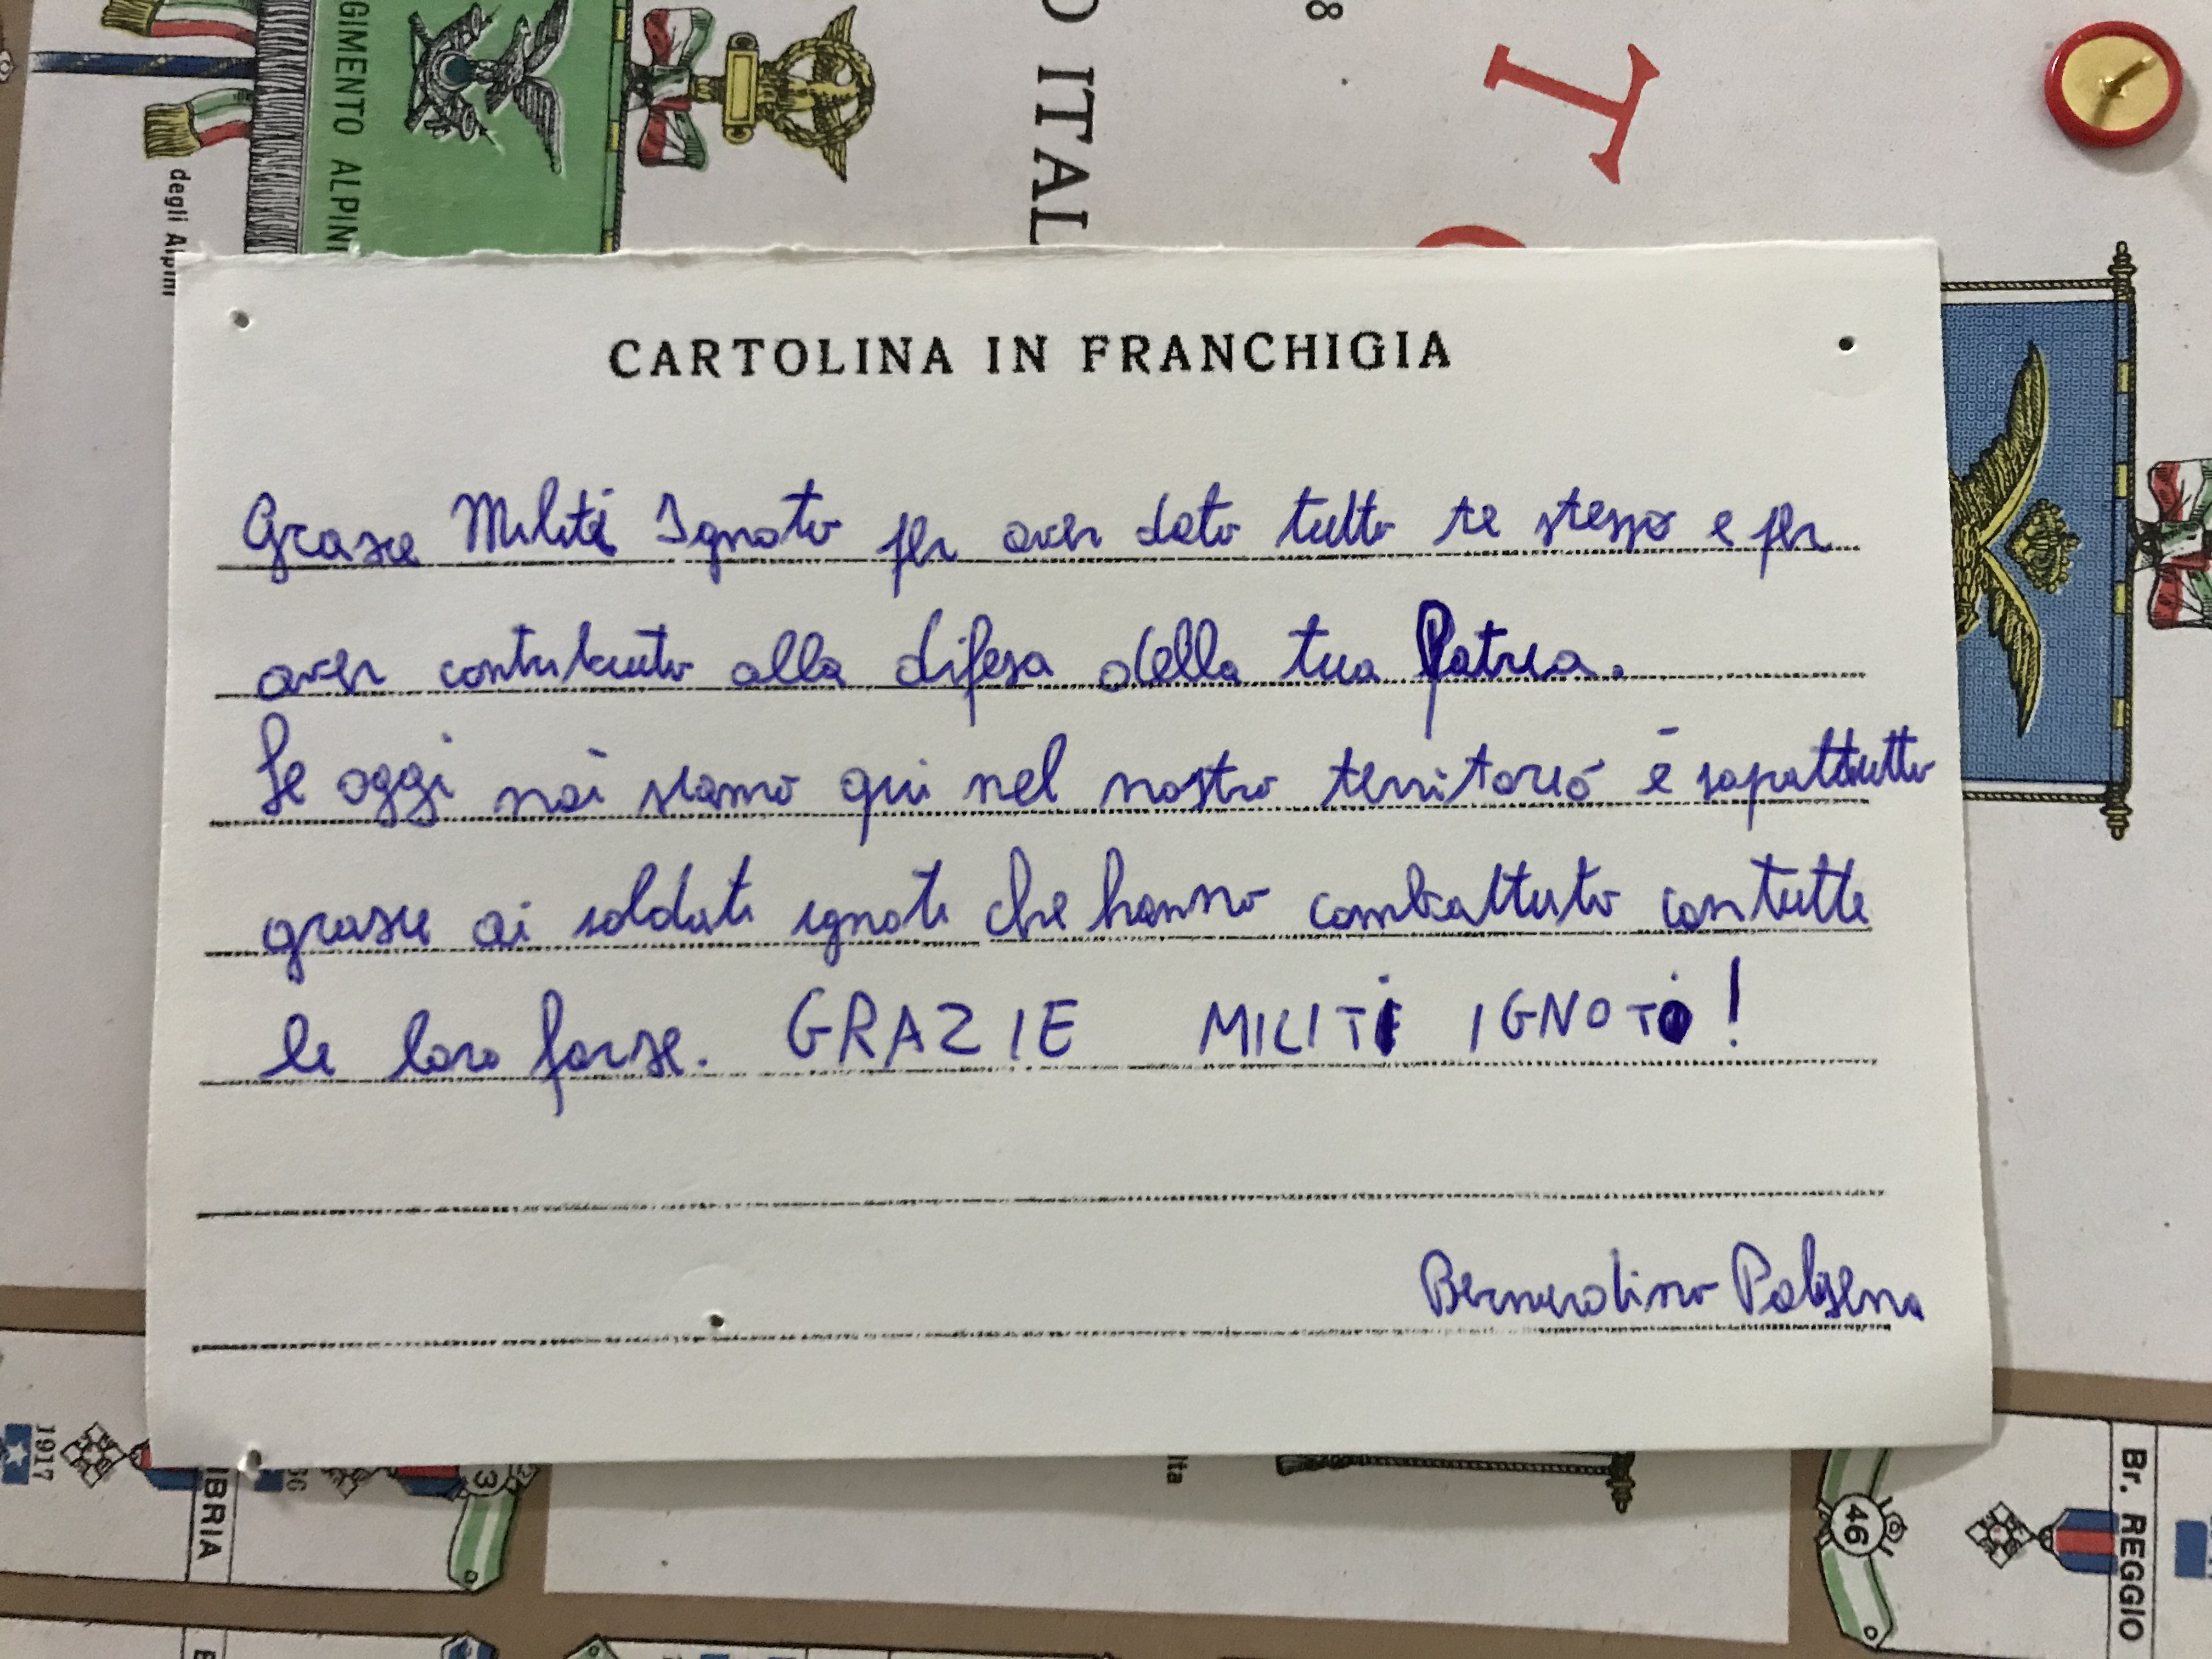 GIMENTO ALPINI
degli Alpini
O ITAL
8
T
CARTOLINA IN FRANCHIGIA
Grazie Militi Ignoto per aver dato tutto te stesso e per
aver contribuito alla difesa della tua Patria.
Se oggi noi siamo qui nel nostro territorio è sopattutto
grazie ai soldati ignoti che hanno combattuto con tutte
le loro forze. GRAZIE MILITI IGNOTI!
Bernardino
1917
IBRIA
36
3
lta
46
Br. REGGIO